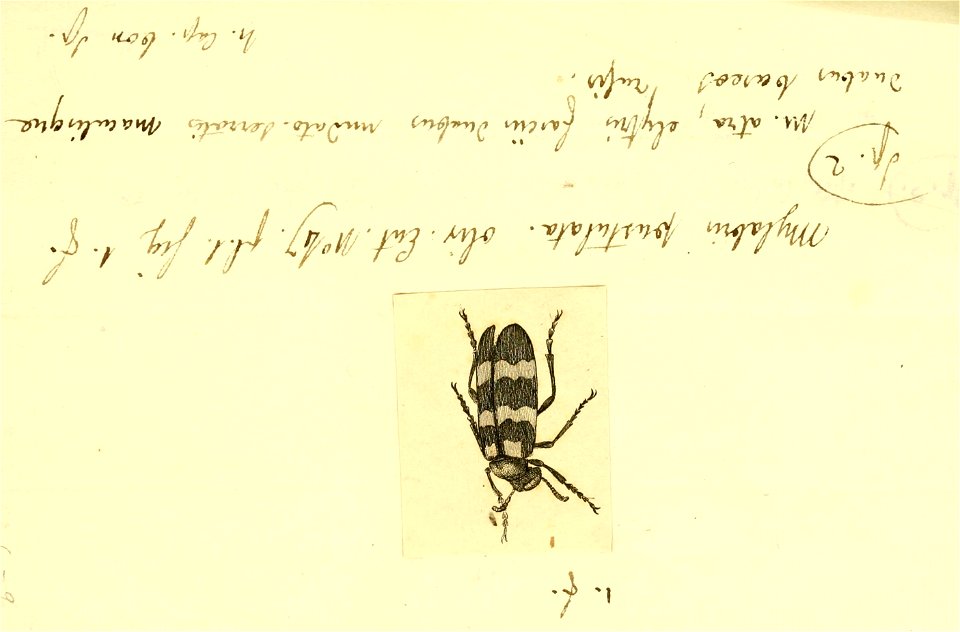 1. f.
Mylabris pustulata. oliv. Ent. No 47. pl. 1. fig. 1. f.
Sp. 2
M. atra, elytris fasciis duabus undato-serratis maculisque
duabus baseos rufis.
h. Cap. bon Sp.